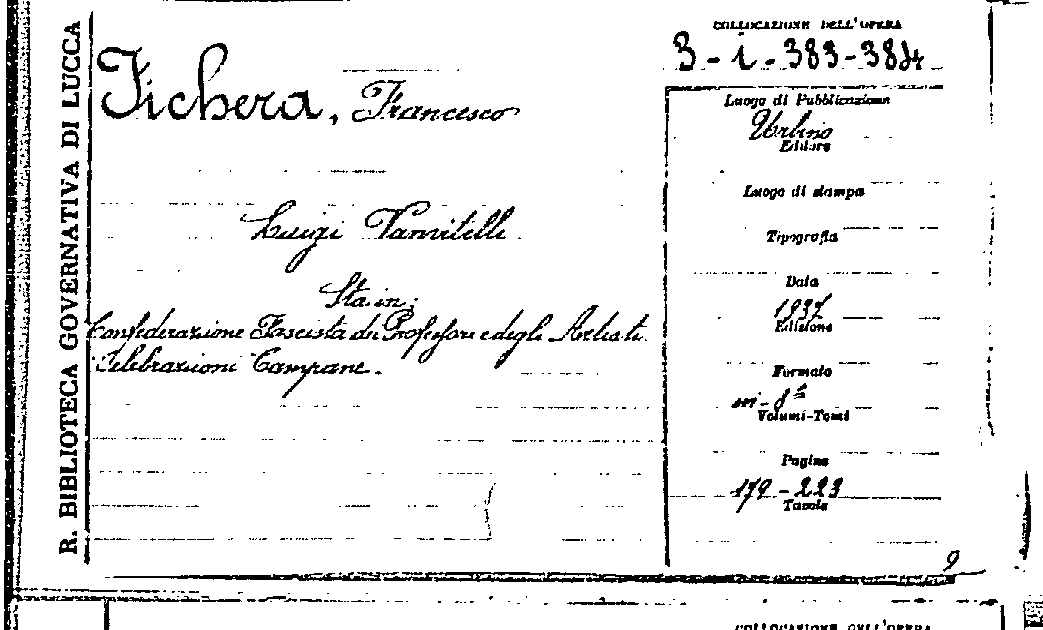 R. BIBLIOTECA GOVERNATIVA DI LUCCA
Fichera, Francesco
Luigi Vanvitelli
Sta in:
Confederazione Fascista dei Professori e degli Artisti.
Celebrazioni Campane.
COLLOCAZIONE DELL'OPERA
3-i-383-384
Luogo di Pubblicazione
Urbino
Editore
Luogo di stampa
Tipografia
Data
1937
Edizione
Formato
in-8º
Volumi-Tomi
Pagine
179-223
Tavole
9
COLLOCAZIONE DELL'OPERA